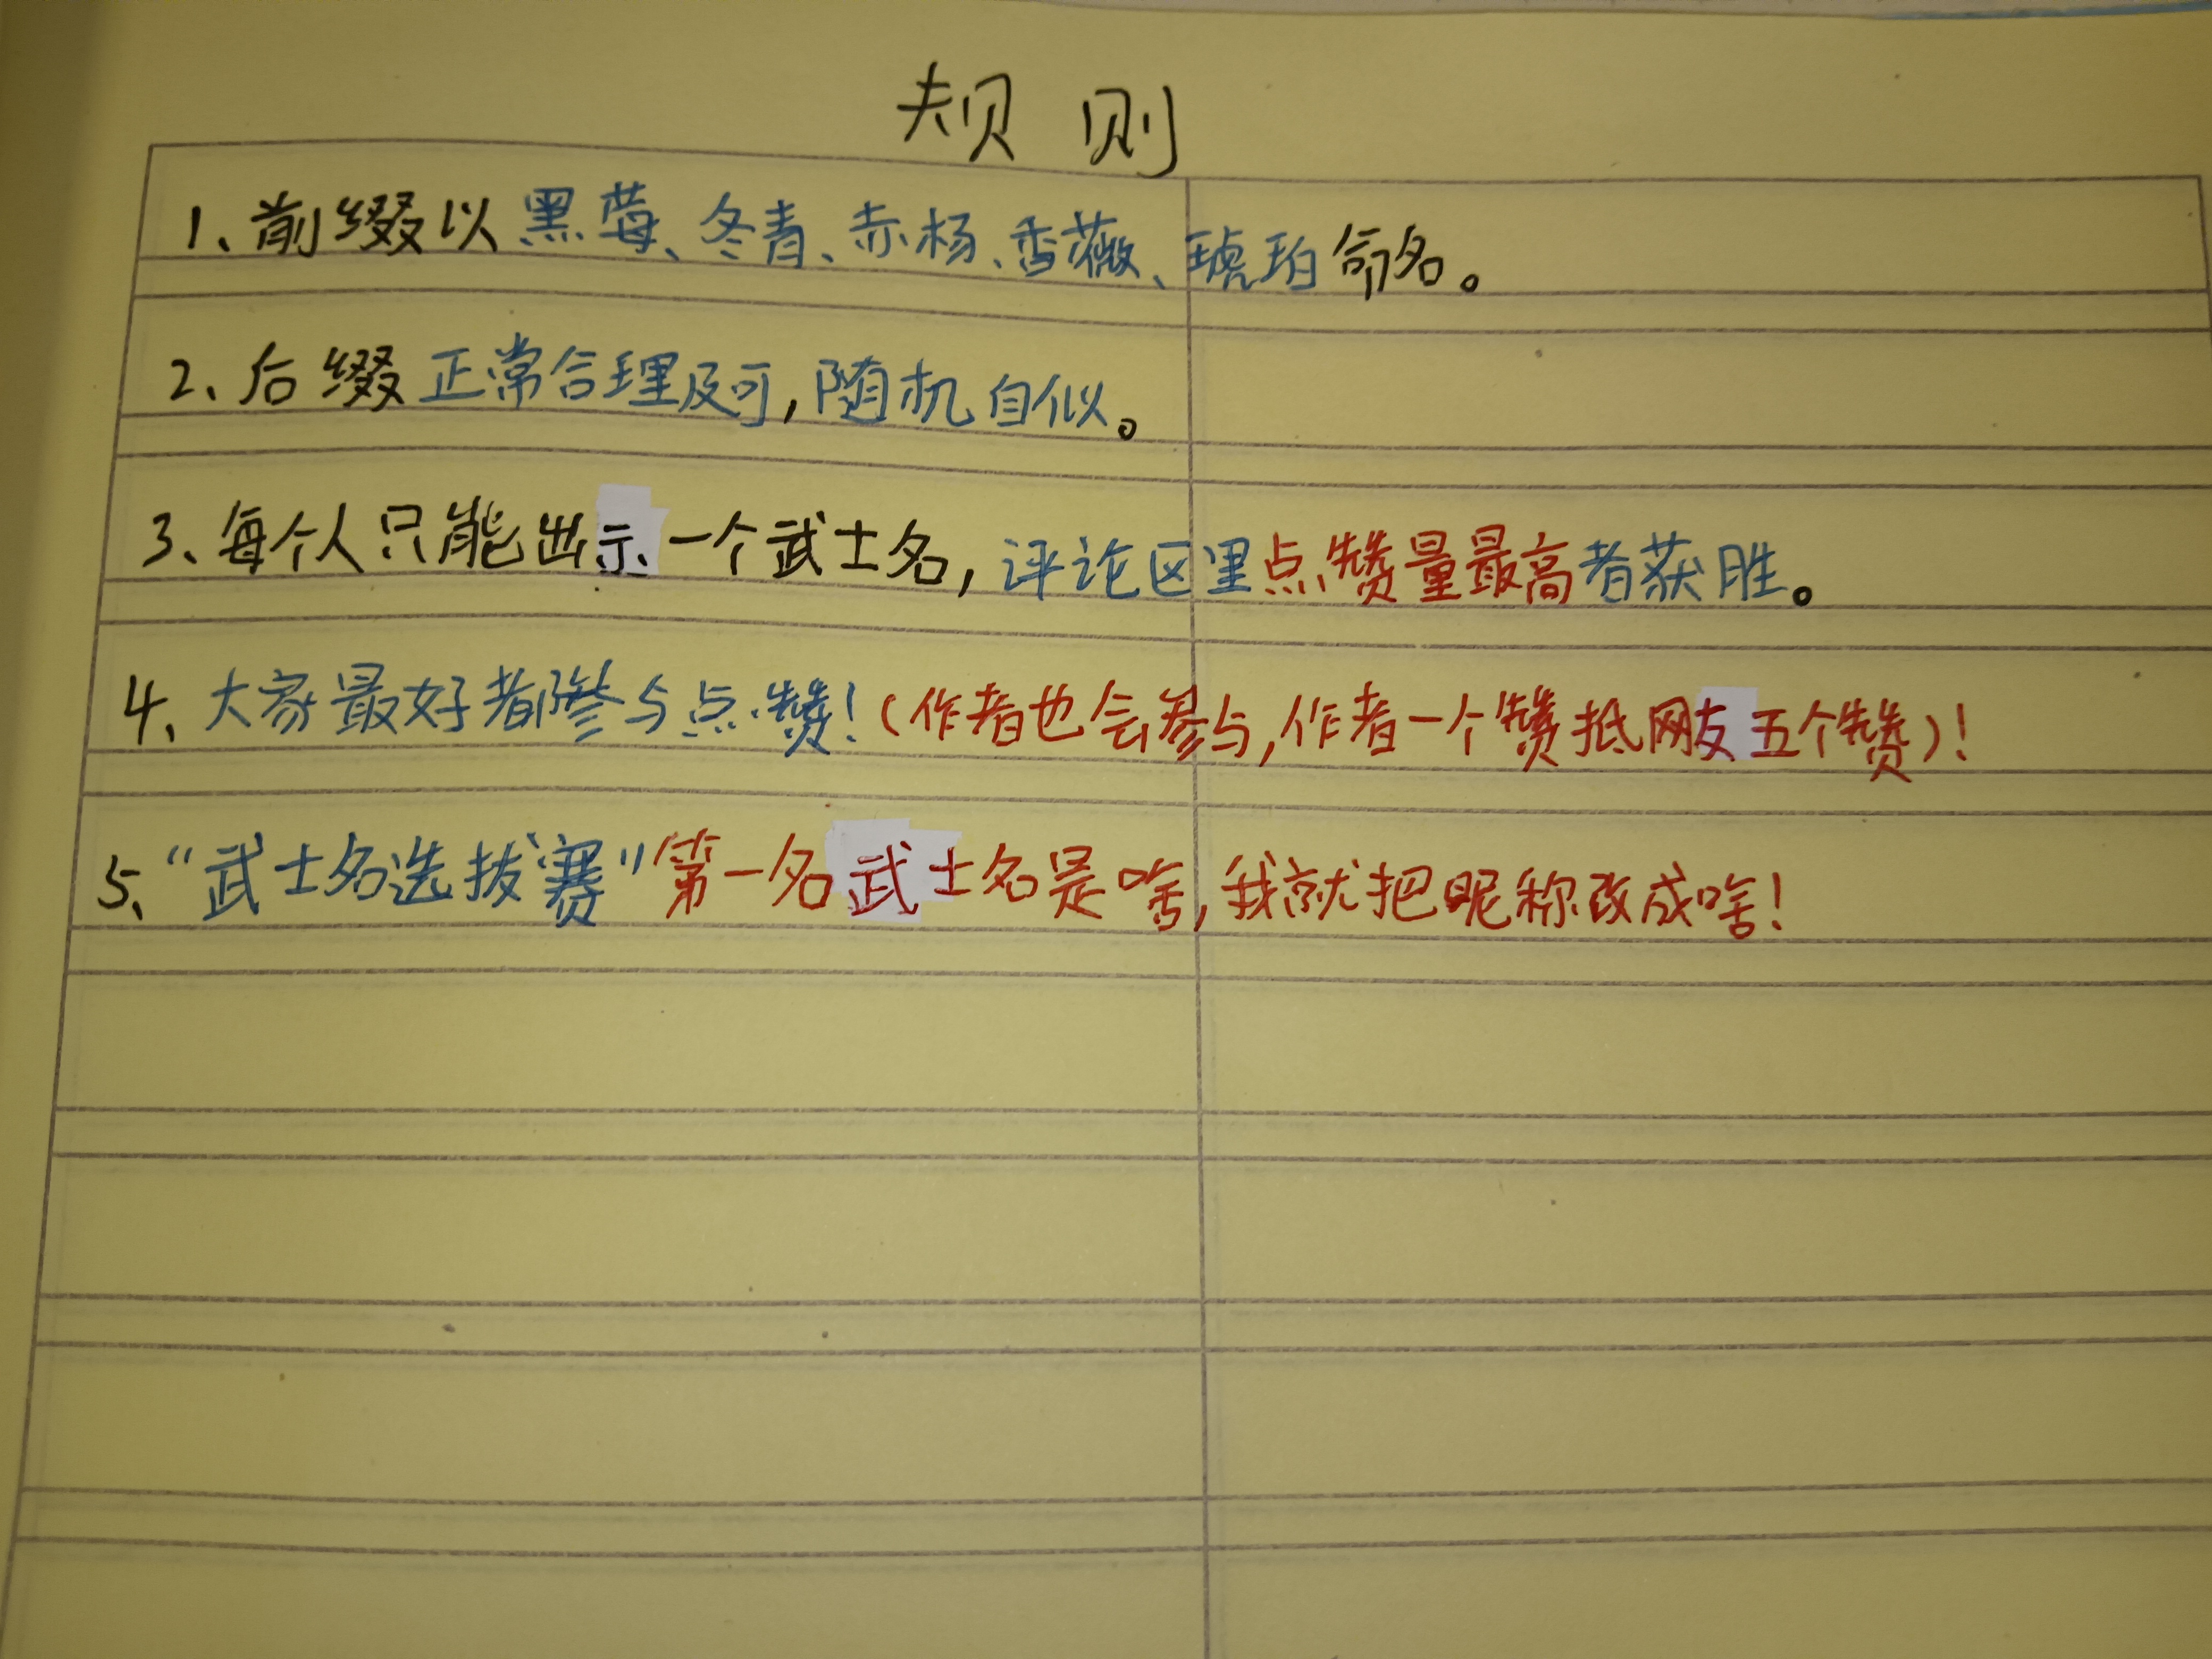 规则
1、前缀以黑莓、冬青、赤杨、香薇、琥珀命名。
2、后缀正常合理及可，随机自似。
3、每个人只能出示一个武士名，评论区里点赞量最高者获胜。
4、大家最好都参与点赞！（作者也会参与，作者一个赞抵网友五个赞）！
5、“武士名选拔赛”第一名武士名是啥，我就把昵称改成啥！